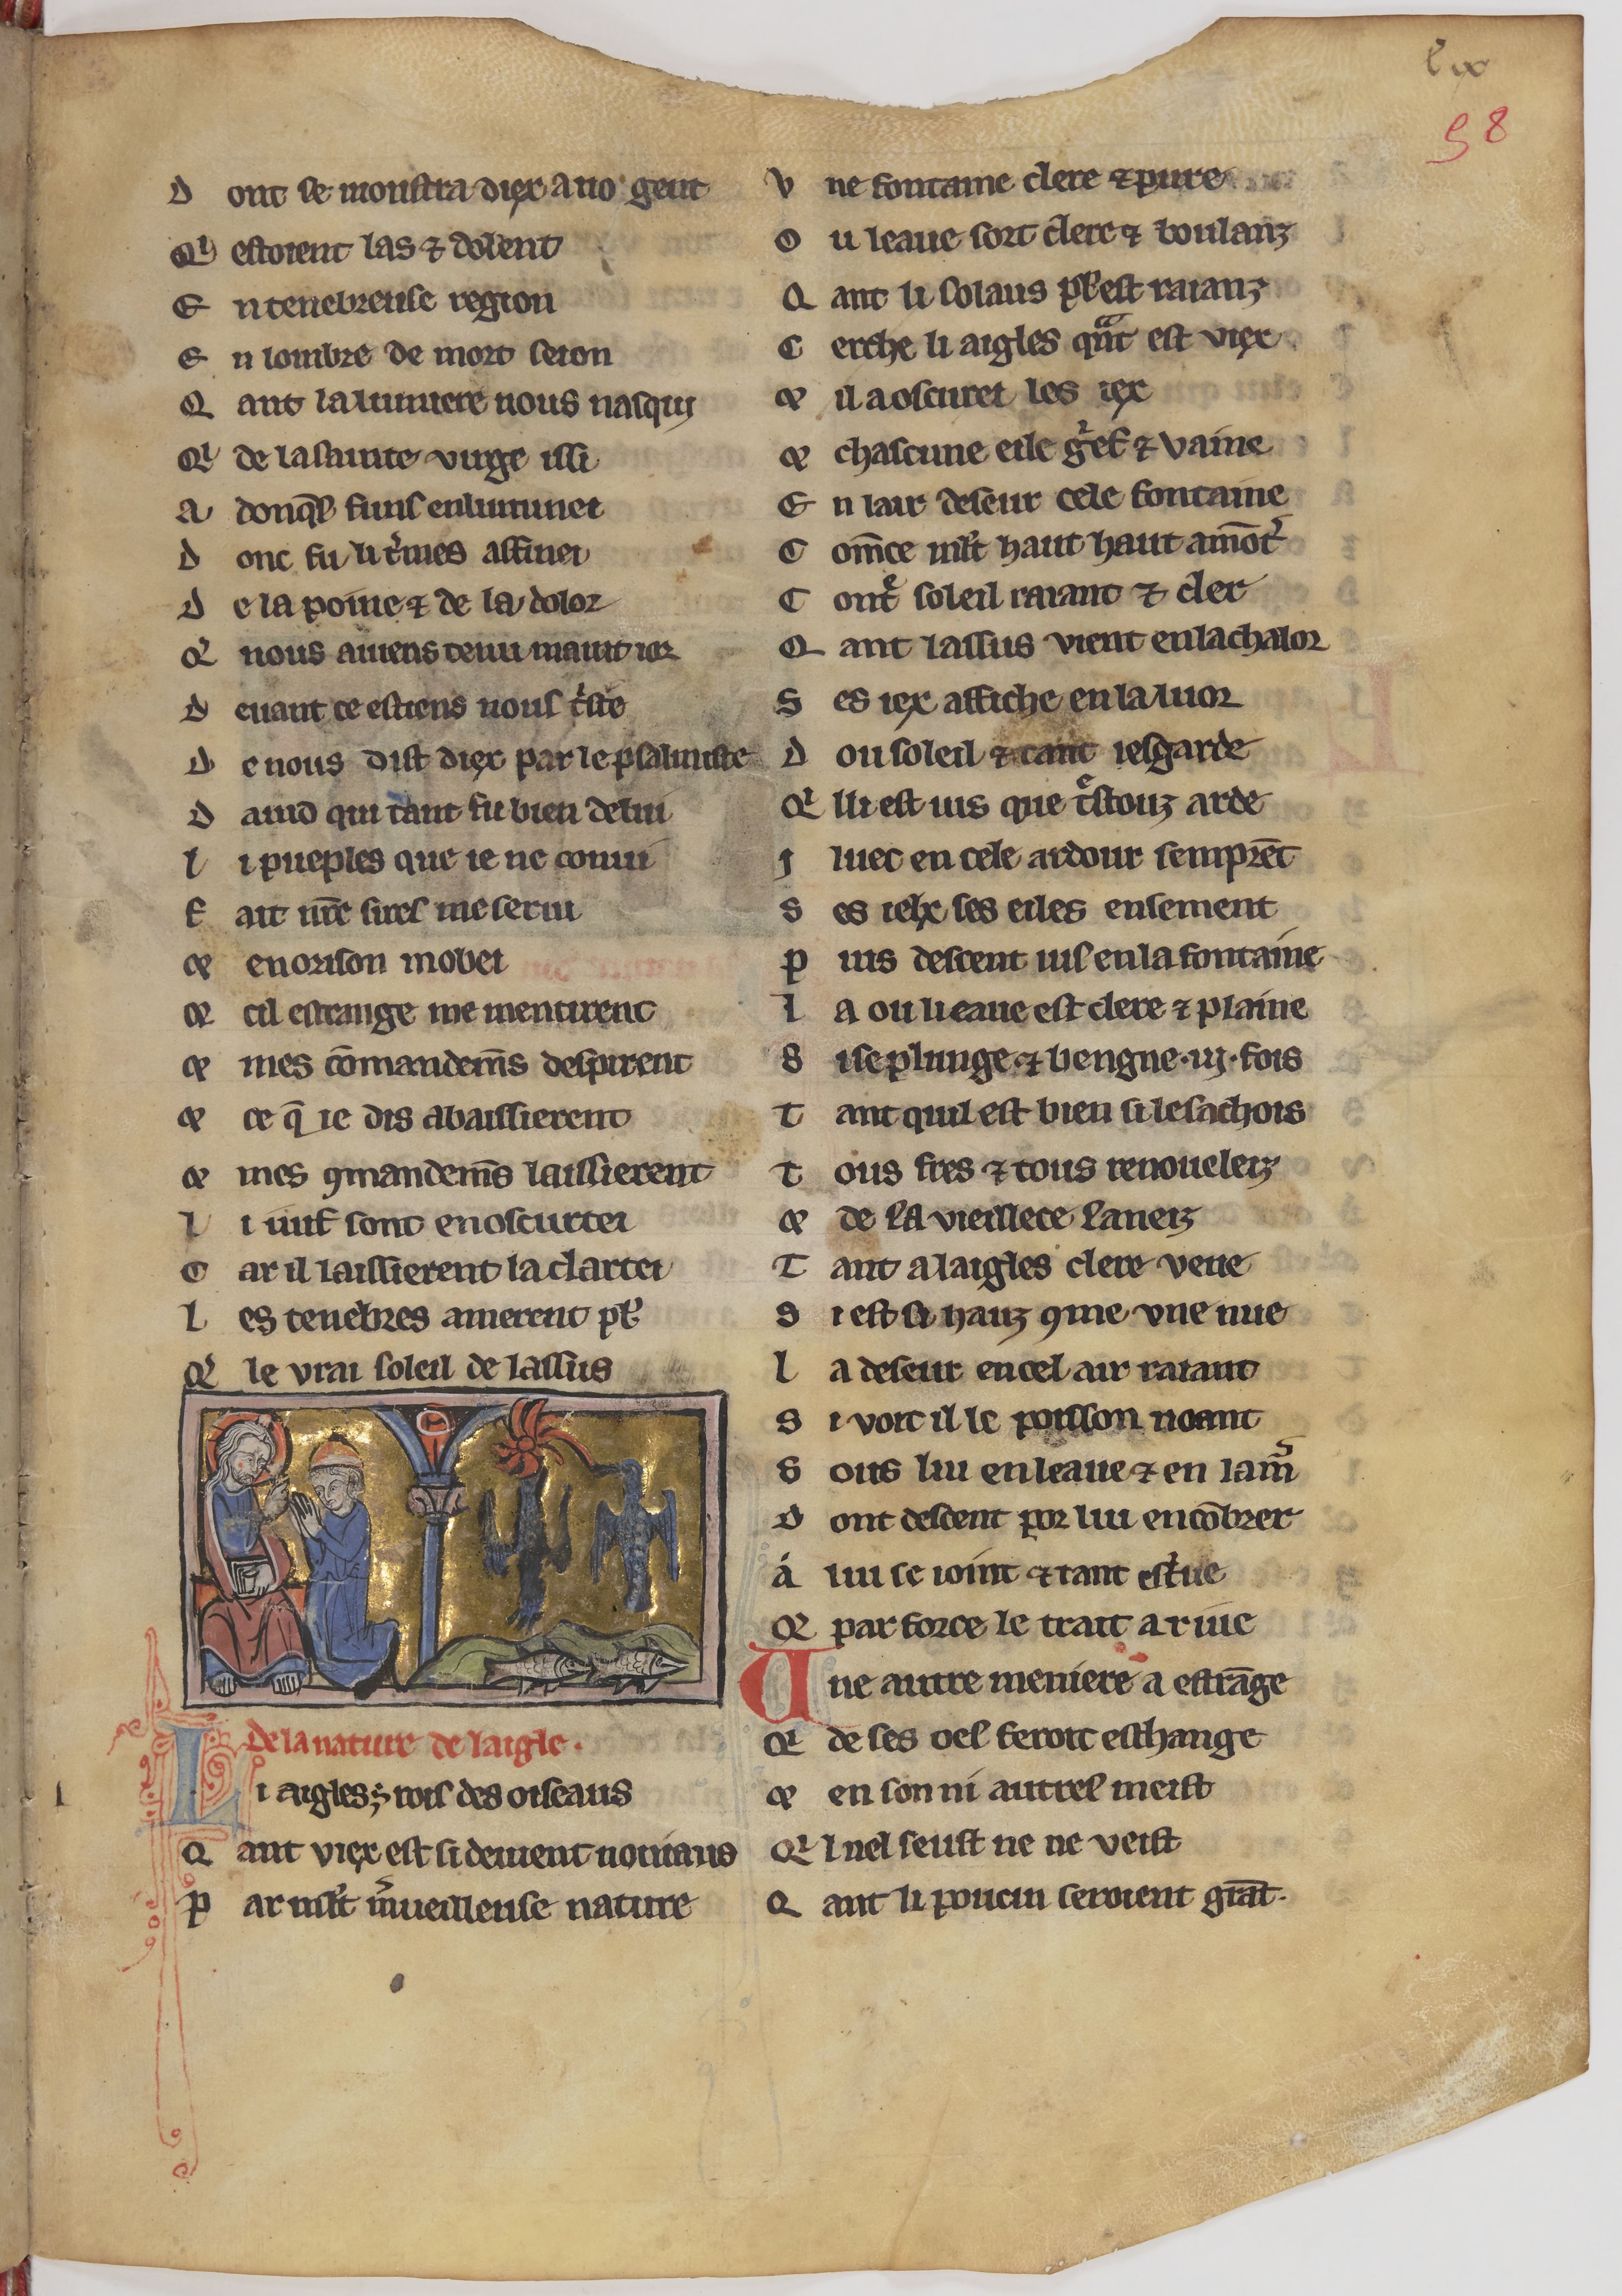 lix
58
D ont se moustra diex a no gent
Qi estoient las ⁊ dolent
E n tenebreuse region
E n lombre de mort seion
Q ant la lumiere nous nasqui
Qi de la sainte virge issi
A donqs fuins enluminei
D onc fu li tᵉmes affinei
D e la poine ⁊ de la dolor
Q' nous auiens tenu maint ior
D euant ce estiens nous tⁱste
D e nous dist diex par le psalmiste
D auid qui tant fu bien de lui
l i pueples que ie ne conui
F ait nr̄e sires me serui
⁊ en orison mobei
⁊ cil estrange me mentirent
⁊ mes cōmandem̄s despirent
⁊ ce q̄ ie dis abaissierent
⁊ mes ꝯmandem̄s laissierent
l i iuif sont enoscurtei
C ar il laissierent la clartei
l es tenebres amerent pl'
Q' le vrai soleil de lassus
De la nature de laigle.
L i aigles ; rois des oiseaus
Q ant viex est si deuient nouiaus
P ar mlt' mᵉrueilleuse nature
V ne fontaine clere ⁊ pure
O u leaue sort clere ⁊ boulanz
Q ant li solaus pl' est raianz
C erche li aigles qᵃnt est viex
⁊ il a oscurei les iex
⁊ chascune eile gⁱef ⁊ vaine
E n lair deseur cele fontaine
C om̄ce mlt' haut haut a mōtᵉ
C ontᵉ soleil raiant ⁊ cler
Q ant lassus vient en la chalor
S es iex affiche en la luor
D ou soleil ⁊ tant iesgarde
Qi lli est uis que tᵉstouz arde
J luec en cele ardour semprēt
S es ielx ses eiles ensement
P uis descent ius en la fontaine
l A ou li eaue est clere ⁊ plaine
S i se plunge ⁊ bengne .iij. fois
T ant quil est bien si le sachois
T ous fres ⁊ tous renouelez
⁊ de la vieillece lanez
T ant a laigles clere veue
S i est si hauz ꝯme vne nue
l a deseur en cel air raiant
S i voit il le poisson noant
S ous lui en leaue ⁊ en la mᵉr
D ont descent por lui encōbrer
A lui se ioint ⁊ tant estⁱue
Q' par force le trait a riue
U ne autre meniere a estrāge
Qi de ses oes feroit eschange
⁊ en son ni autres meist
Qi l nel seust ne ne veist
Q ant li poucin seroient grāt.